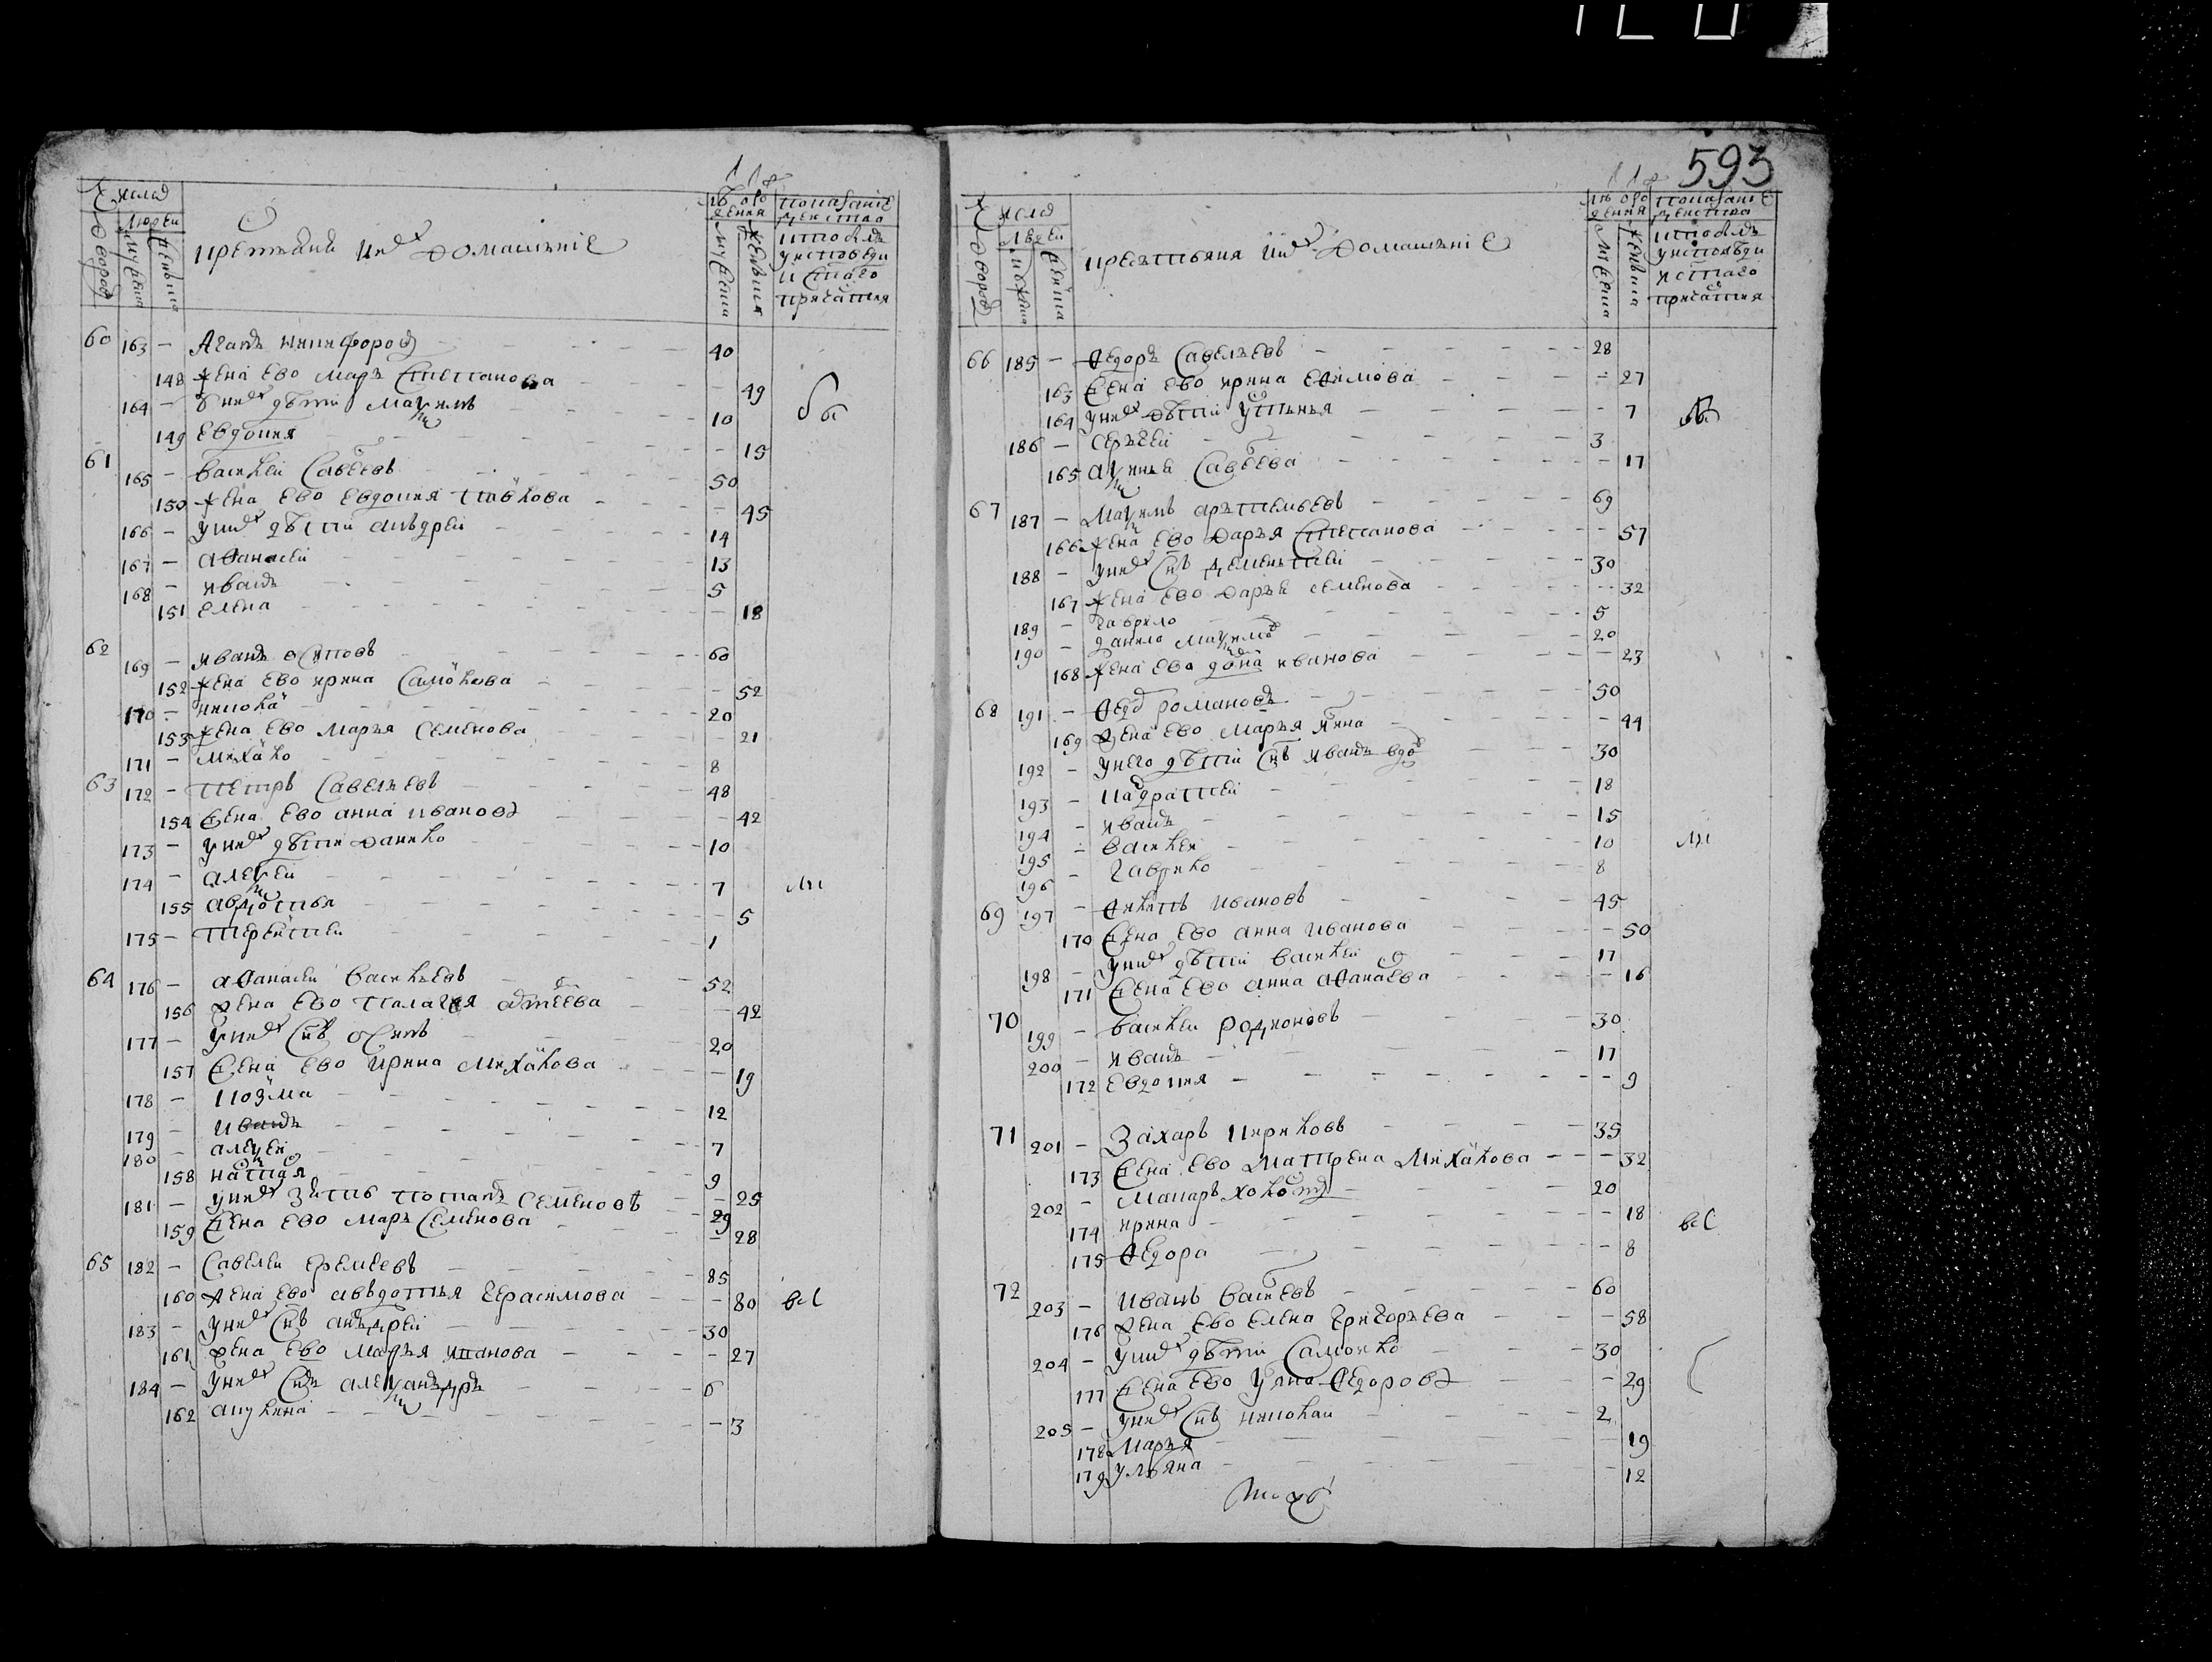 число
людей
дворов
мужеска
женска
крестьяня и их домашние
лѣта от рождения
мужеска
женска
показание действа
кто был
у исповеди
и святаго
причастия
60 163 - Агапъ Никифоров - 40
148 жена ево Марья Степанова - 49
164 - у них дѣти Максимъ - 10
149 Евдокия - 15
61 165 - Василей Савельевъ - 50
150 жена ево Евдокия Павлова - 45
166 - у них дѣти Анъдрей - 14
167 - Афанасей - 13
168 - Иванъ - 5
151 Елена - 18
62 169 - Иванъ Осиповъ - 60
152 жена ево Ирина Самойлова - 52
170 - Николай - 20
153 жена ево Марья Семенова - 21
171 - Михайло - 8
63 172 - Петръ Савельевъ - 48
154 жена ево Анна Иванова - 42
173 - у них дѣти Данило - 10
174 - Алексей - 7
155 Авдотья - 5
175 - Терентей - 1
64 176 - Афанасей Васильевъ - 52
156 жена ево Палагея - 42
177 - у них снъ Осипъ - 20
157 жена ево Ирина Михайлова - 19
178 - Козма - 12
179 - Иванъ - 7
180 - Алексей - 9
158 Настася - 25
181 - у них зять Потапъ Семеновъ - 29
159 жена ево Марья Семенова - 28
65 182 - Савелей Еремеевъ - 85
160 жена ево Авъдотья Герасимова - 80
183 - у них снъ Анъдрей - 30
161 жена ево Маръя - 27
184 - у них снъ Алексанъдръ - 6
162 Акулина - 3
593
число
людей
дворов
мужеска
женска
крестьяня и их домашние
лѣта от рождения
мужеска
женска
показание действа
кто был
у исповеди
и святаго
причастия
66 185 - Федоръ Савельевъ - 28
163 жена ево Ирина Ефимова - 27
164 у них дѣти Устинья - 7
186 - Серъгей - 3
165 Аксинья Савельева - 17
67 187 - Максимъ Арътемьевъ - 69
166 жена ево Даръя Степанова - 57
188 - у них снъ Дементей - 30
167 жена ево Даръе Семенова - 32
189 - Гаврило - 5
190 - Данило Максимов - 20
168 жена ево Домна Иванова - 23
68 191 - Федор Романовъ - 50
169 жена ево Маръя - 44
192 - у него дѣти снъ Иванъ вдов - 30
193 - Кадратей - 18
194 - Иванъ - 15
195 - Василей - 10
196 - Гаврило - 8
69 197 - Филипъ Ивановъ - 45
170 жена ево Анна Иванова - 50
198 - у них дѣти Василей - 17
171 жена ево Анна Афанасева - 16
70 199 - Василей Родионовъ - 30
200 - Иванъ - 17
172 Евдокия - 9
71 201 - Захаръ Кириловъ - 35
173 жена ево Матрена Михайлова - 32
202 - Макаръ холост - 20
174 Ирина - 18
175 Федора - 8
72 203 - Иванъ Васильевъ - 60
176 жена ево Елена Григоръева - 58
204 - у них дѣти Самойло - 30
177 жена ево Ульяна Федорова - 29
205 - у них снъ Николай - 2
178 Маръя - 19
179 Ульяна - 12